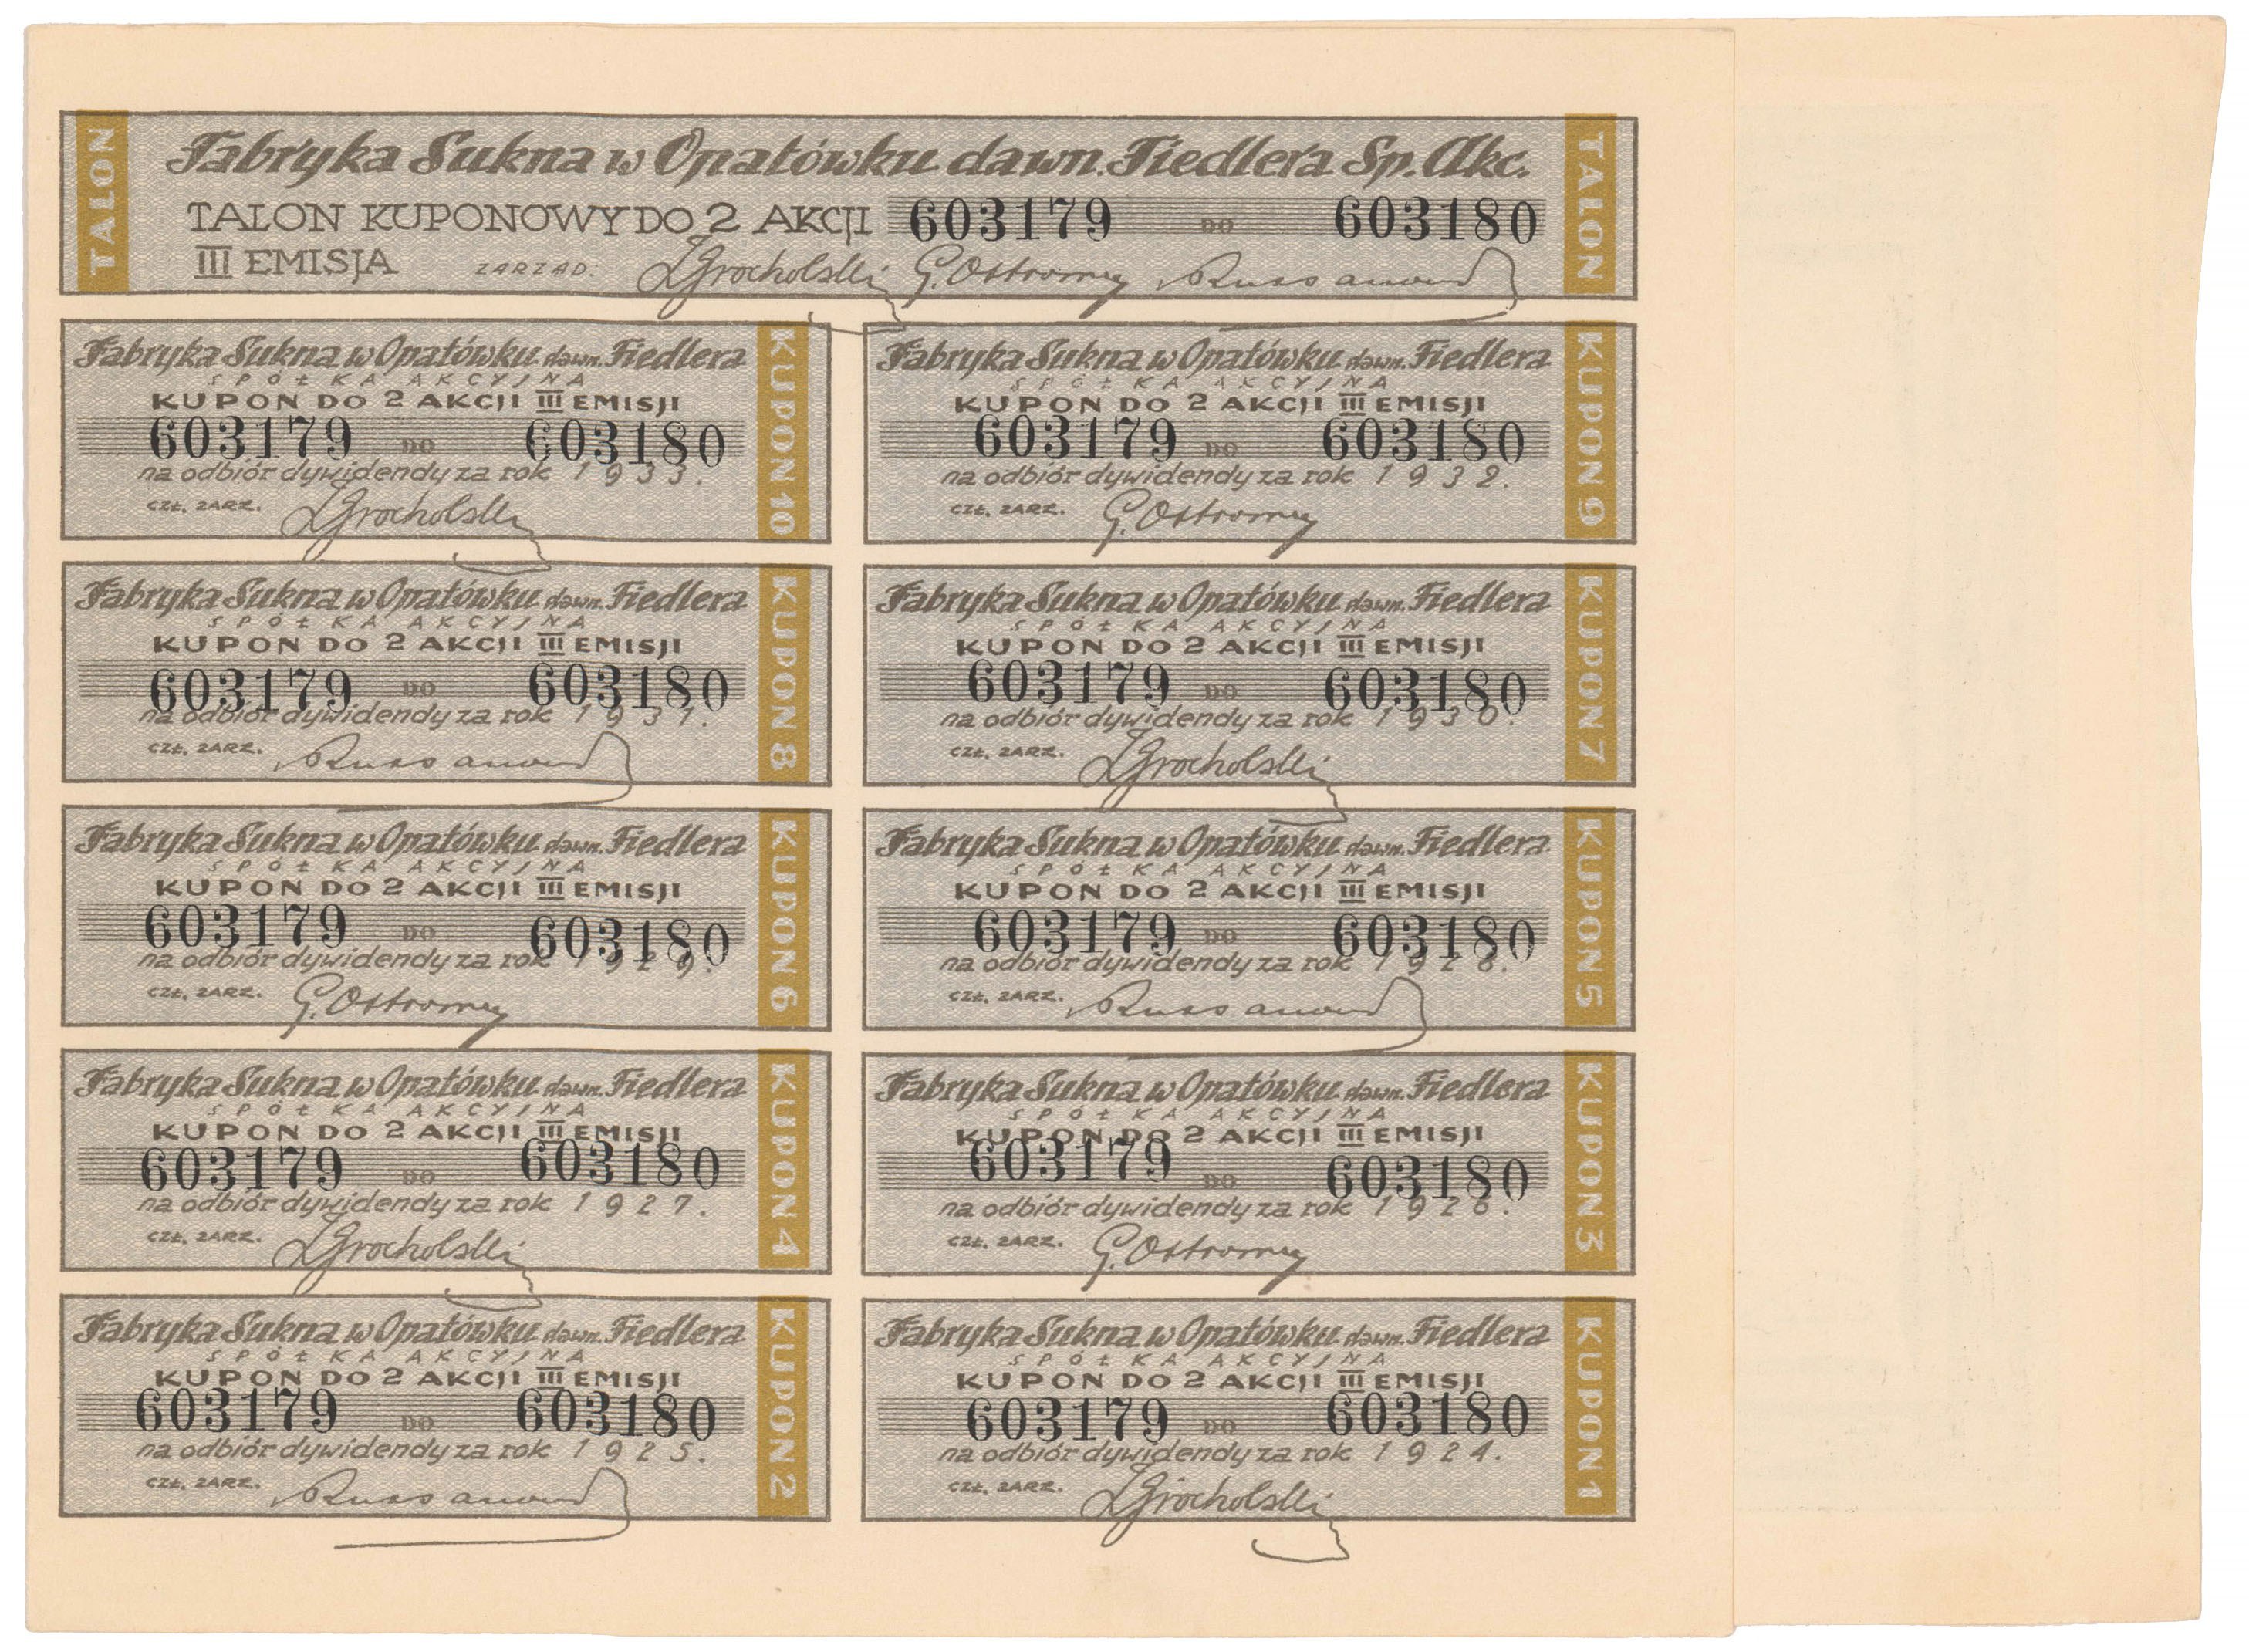 TALON
Fabryka Sukna w Opatówku dawn. Fiedlera Sp. Akc.
TALON KUPONOWY DO 2 AKCJI 603179 DO 603180
III EMISJA ZARZĄD.
TALON
Fabryka Sukna w Opatówku dawn. Fiedlera
SPÓŁKA AKCYJNA
KUPON DO 2 AKCJI III EMISJI
603179 DO 603180
na odbiór dywidendy za rok 1933.
CZŁ. ZARZ.
KUPON 10
Fabryka Sukna w Opatówku dawn. Fiedlera
SPÓŁKA AKCYJNA
KUPON DO 2 AKCJI III EMISJI
603179 DO 603180
na odbiór dywidendy za rok 1932.
CZŁ. ZARZ. G. Ostromęc
KUPON 9
Fabryka Sukna w Opatówku dawn. Fiedlera
SPÓŁKA AKCYJNA
KUPON DO 2 AKCJI III EMISJI
603179 DO 603180
na odbiór dywidendy za rok 1931.
CZŁ. ZARZ.
KUPON 8
Fabryka Sukna w Opatówku dawn. Fiedlera
SPÓŁKA AKCYJNA
KUPON DO 2 AKCJI III EMISJI
603179 DO 603180
na odbiór dywidendy za rok 1930.
CZŁ. ZARZ.
KUPON 7
Fabryka Sukna w Opatówku dawn. Fiedlera
SPÓŁKA AKCYJNA
KUPON DO 2 AKCJI III EMISJI
603179 DO 603180
na odbiór dywidendy za rok 1929.
CZŁ. ZARZ.
KUPON 6
Fabryka Sukna w Opatówku dawn. Fiedlera
SPÓŁKA AKCYJNA
KUPON DO 2 AKCJI III EMISJI
603179 DO 603180
na odbiór dywidendy za rok 1928.
CZŁ. ZARZ.
KUPON 5
Fabryka Sukna w Opatówku dawn. Fiedlera
SPÓŁKA AKCYJNA
KUPON DO 2 AKCJI III EMISJI
603179 DO 603180
na odbiór dywidendy za rok 1927.
CZŁ. ZARZ.
KUPON 4
Fabryka Sukna w Opatówku dawn. Fiedlera
SPÓŁKA AKCYJNA
KUPON DO 2 AKCJI III EMISJI
603179 DO 603180
na odbiór dywidendy za rok 1926.
CZŁ. ZARZ.
KUPON 3
Fabryka Sukna w Opatówku dawn. Fiedlera
SPÓŁKA AKCYJNA
KUPON DO 2 AKCJI III EMISJI
603179 DO 603180
na odbiór dywidendy za rok 1925.
CZŁ. ZARZ.
KUPON 2
Fabryka Sukna w Opatówku dawn. Fiedlera
SPÓŁKA AKCYJNA
KUPON DO 2 AKCJI III EMISJI
603179 DO 603180
na odbiór dywidendy za rok 1924.
CZŁ. ZARZ.
KUPON 1